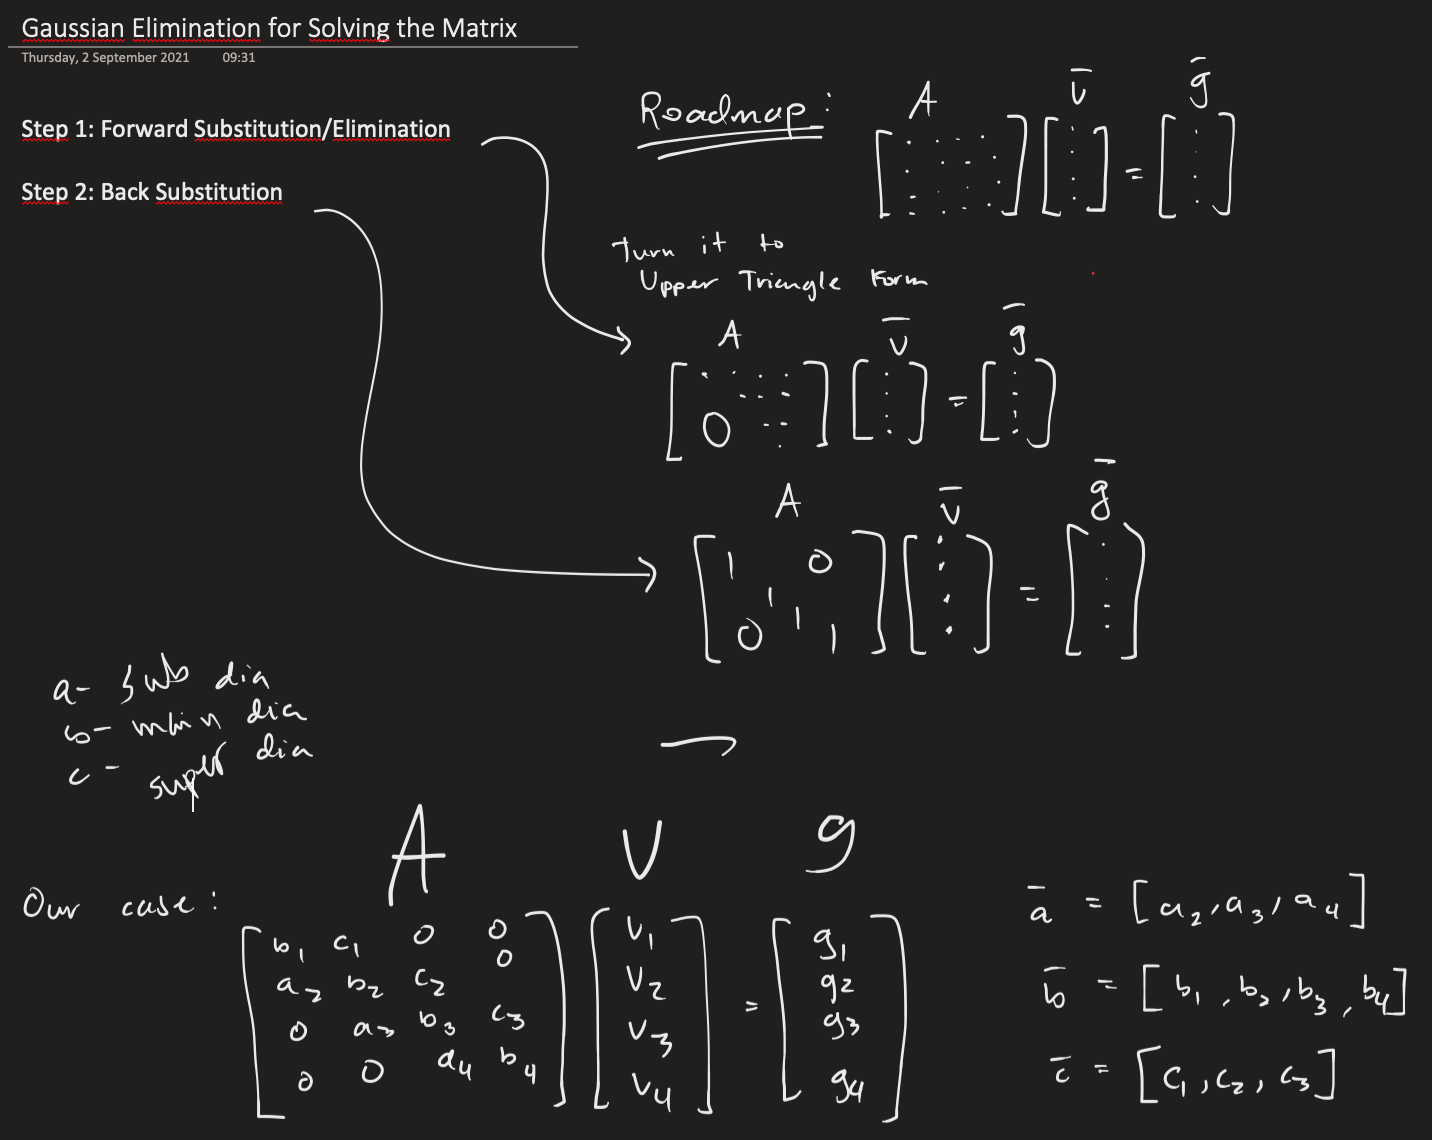 Gaussian Elimination for Solving the Matrix
Thursday, 2 September 2021 09:31
Step 1: Forward Substitution/Elimination
Step 2: Back Substitution
Roadmap:
A v̄ ḡ
[ ] [ ] = [ ]
Turn it to
Upper Triangle Form
A v̄ ḡ
[ 0 ] [ ] = [ ]
A v̄ ḡ
[ 1 0
1
0 1 1 ] [ ] = [ ]
a- sub dia
b- main dia
c- super dia
A v g
Our case:
b₁ c₁ 0 0 v₁ g₁
a₂ b₂ c₂ 0 v₂ g₂
0 a₃ b₃ c₃ v₃ = g₃
0 0 a₄ b₄ v₄ g₄
ā = [a₂, a₃, a₄]
b̄ = [b₁, b₂, b₃, b₄]
c̄ = [c₁, c₂, c₃]